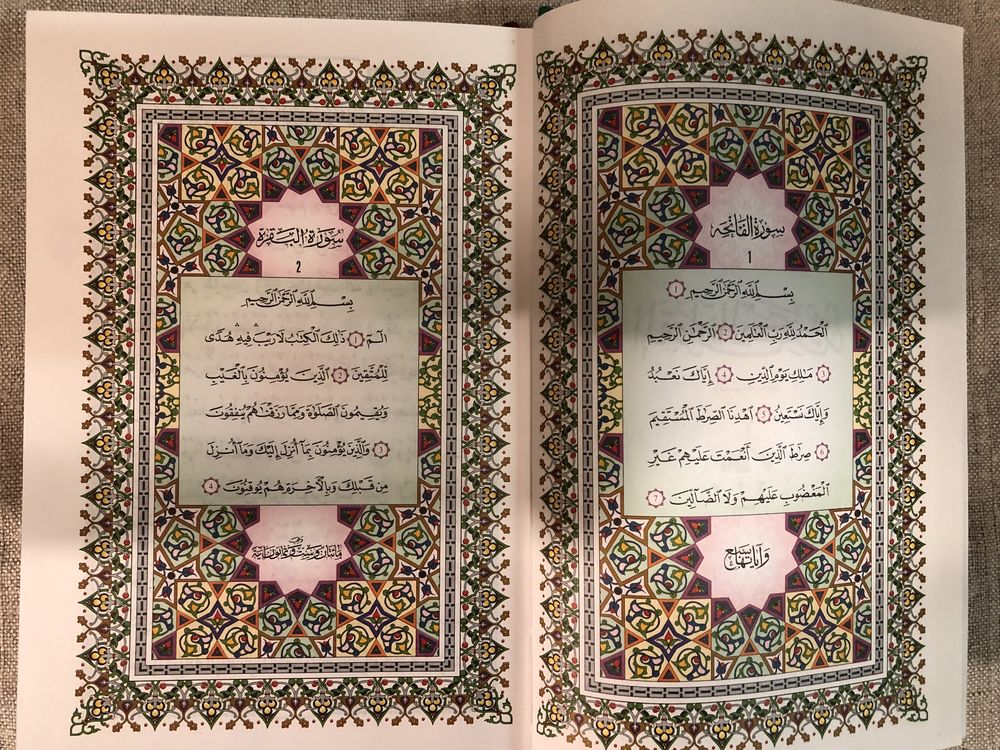 سورة الفاتحه
1
بِسْمِ ٱللَّهِ ٱلرَّحْمَٰنِ ٱلرَّحِيمِ 1
ٱلْحَمْدُ لِلَّهِ رَبِّ ٱلْعَٰلَمِينَ 2 ٱلرَّحْمَٰنِ ٱلرَّحِيمِ
3 مَٰلِكِ يَوْمِ ٱلدِّينِ 4 إِيَّاكَ نَعْبُدُ
وَإِيَّاكَ نَسْتَعِينُ 5 ٱهْدِنَا ٱلصِّرَٰطَ ٱلْمُسْتَقِيمَ
6 صِرَٰطَ ٱلَّذِينَ أَنْعَمْتَ عَلَيْهِمْ غَيْرِ
ٱلْمَغْضُوبِ عَلَيْهِمْ وَلَا ٱلضَّآلِّينَ 7
وآياتها سبع
سُورَةُ الْبَقَرَة
2
بِسْمِ ٱللَّهِ ٱلرَّحْمَٰنِ ٱلرَّحِيمِ
الٓمٓ 1 ذَٰلِكَ ٱلْكِتَٰبُ لَا رَيْبَ ۛ فِيهِ ۛ هُدًى
لِّلْمُتَّقِينَ 2 ٱلَّذِينَ يُؤْمِنُونَ بِٱلْغَيْبِ
وَيُقِيمُونَ ٱلصَّلَوٰةَ وَمِمَّا رَزَقْنَٰهُمْ يُنفِقُونَ
3 وَٱلَّذِينَ يُؤْمِنُونَ بِمَآ أُنزِلَ إِلَيْكَ وَمَآ أُنزِلَ
مِن قَبْلِكَ وَبِٱلْأٓخِرَةِ هُمْ يُوقِنُونَ 4
وهي
مائتان وست وثمانون آية